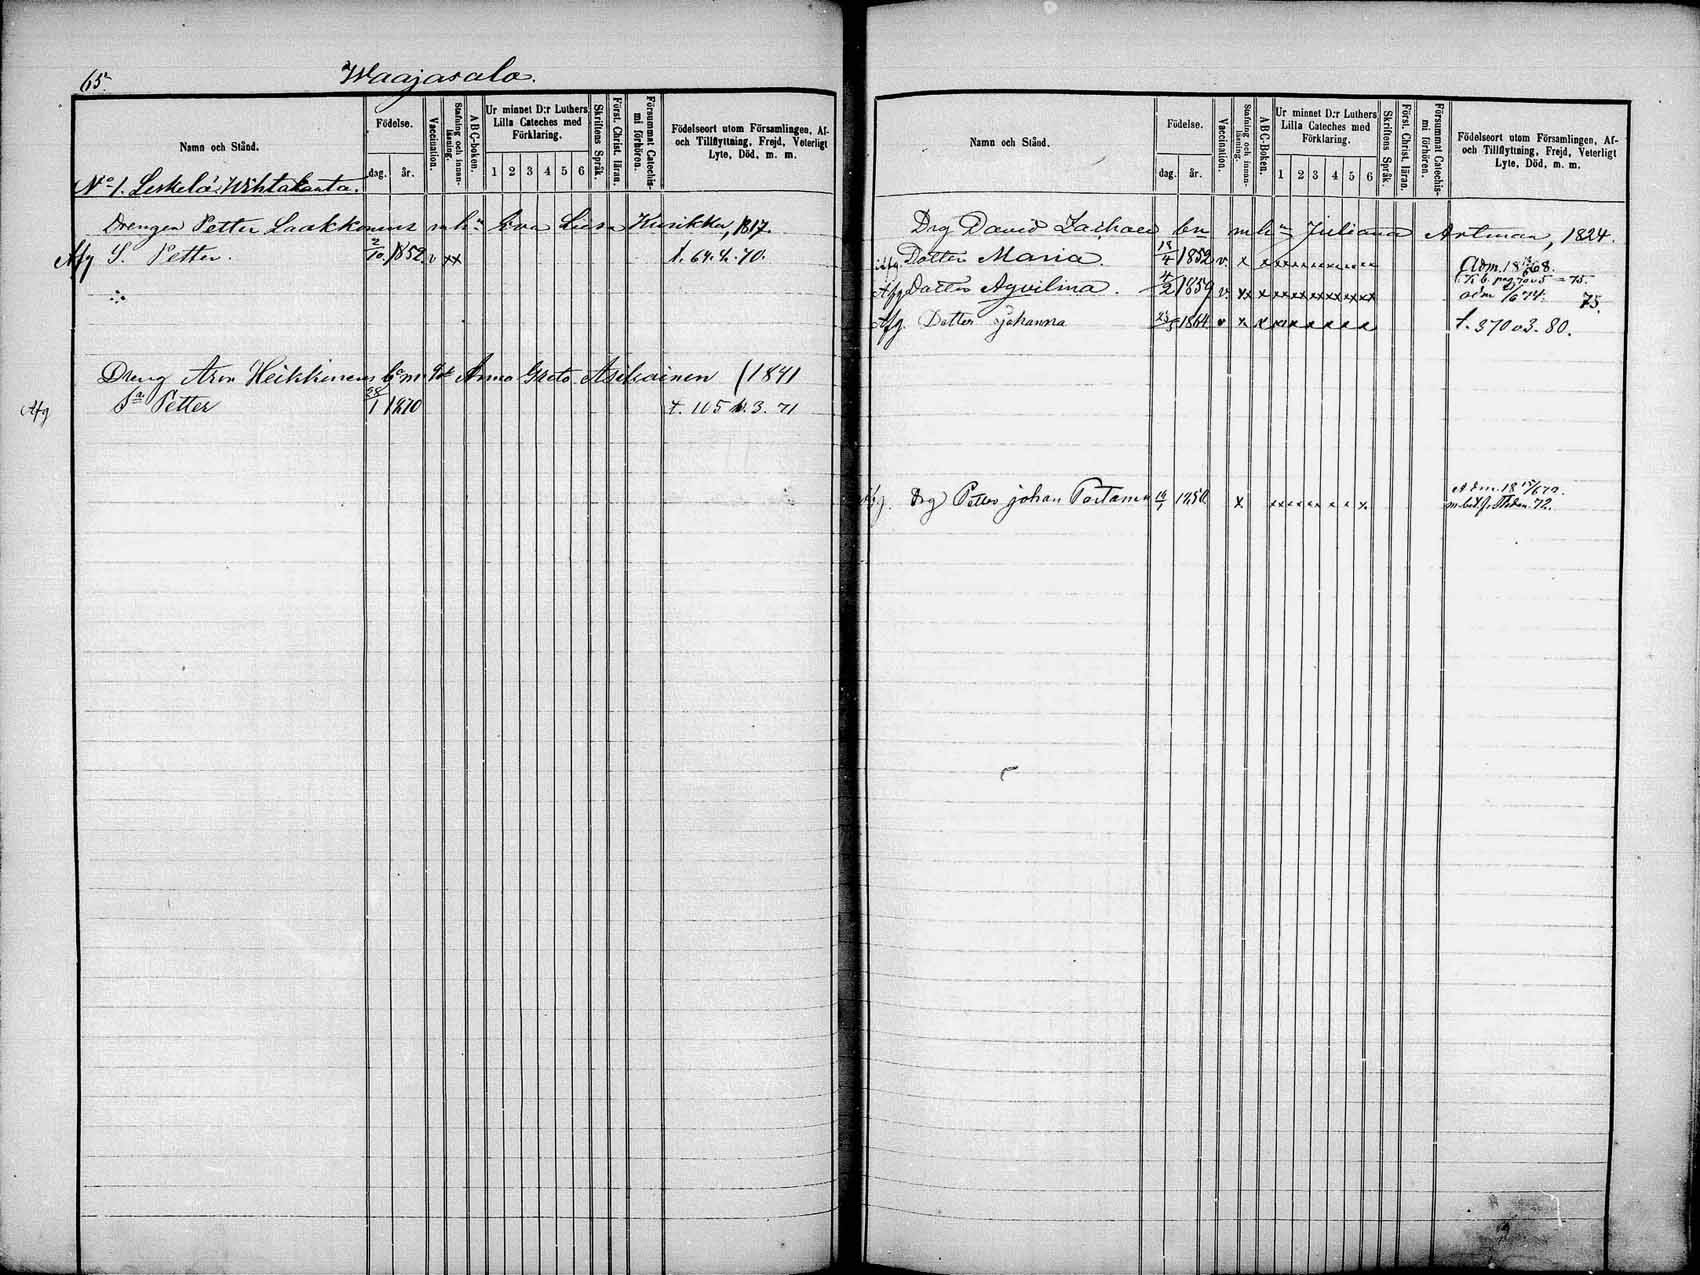 65.
Waajasalo.
Namn och Stånd.
Födelse.
dag.
år.
Vaccination.
Stafning och innan-läsning.
ABC-boken.
Ur minnet D:r Luthers Lilla Cateches med Förklaring.
1 2 3 4 5 6
Skriftens Språk.
Först. Christ. läran.
Försummat Catechis-mi förhören.
Födelseort utom Församlingen, Af-
och Tillflyttning, Frejd, Veterligt
Lyte, Död, m. m.
No 1. Leskelä Wihtakanta.
Drengen Petter Laakkonens m hu Eva Lisa Kusikka, 1817.
Afg S. Petter. 2/10 1852. v xx t. 64. h. 70.
Dreng Aron Heikkinens Anna Greta Asikainen / 1841
Afg Petter 28/1 1870 t. 105 v. 3. 71
Namn och Stånd.
Födelse.
dag.
år.
Vaccination.
Stafning och innan-läsning.
ABC-boken.
Ur minnet D:r Luthers Lilla Cateches med Förklaring.
1 2 3 4 5 6
Skriftens Språk.
Först. Christ. läran.
Försummat Catechis-mi förhören.
Födelseort utom Församlingen, Af-
och Tillflyttning, Frejd, Veterligt
Lyte, Död, m. m.
Drg David m hu Juliana Artman, 1824.
Afg. Dotter Maria. 18/4 1852 v. x x xxxxxxxxxx Adm. 18 68.
Afg Dotter Aqvilina. 4/2 1859 v. xx x xxxxxxxxxx adm 74. 75.
Afg. Dotter Johanna 1864 v x x xx x x x x x t. 370 v 3. 80.
Drg Petter Johan Partanen 1850. x xxxxx x x x Adm. 18 70.
72.